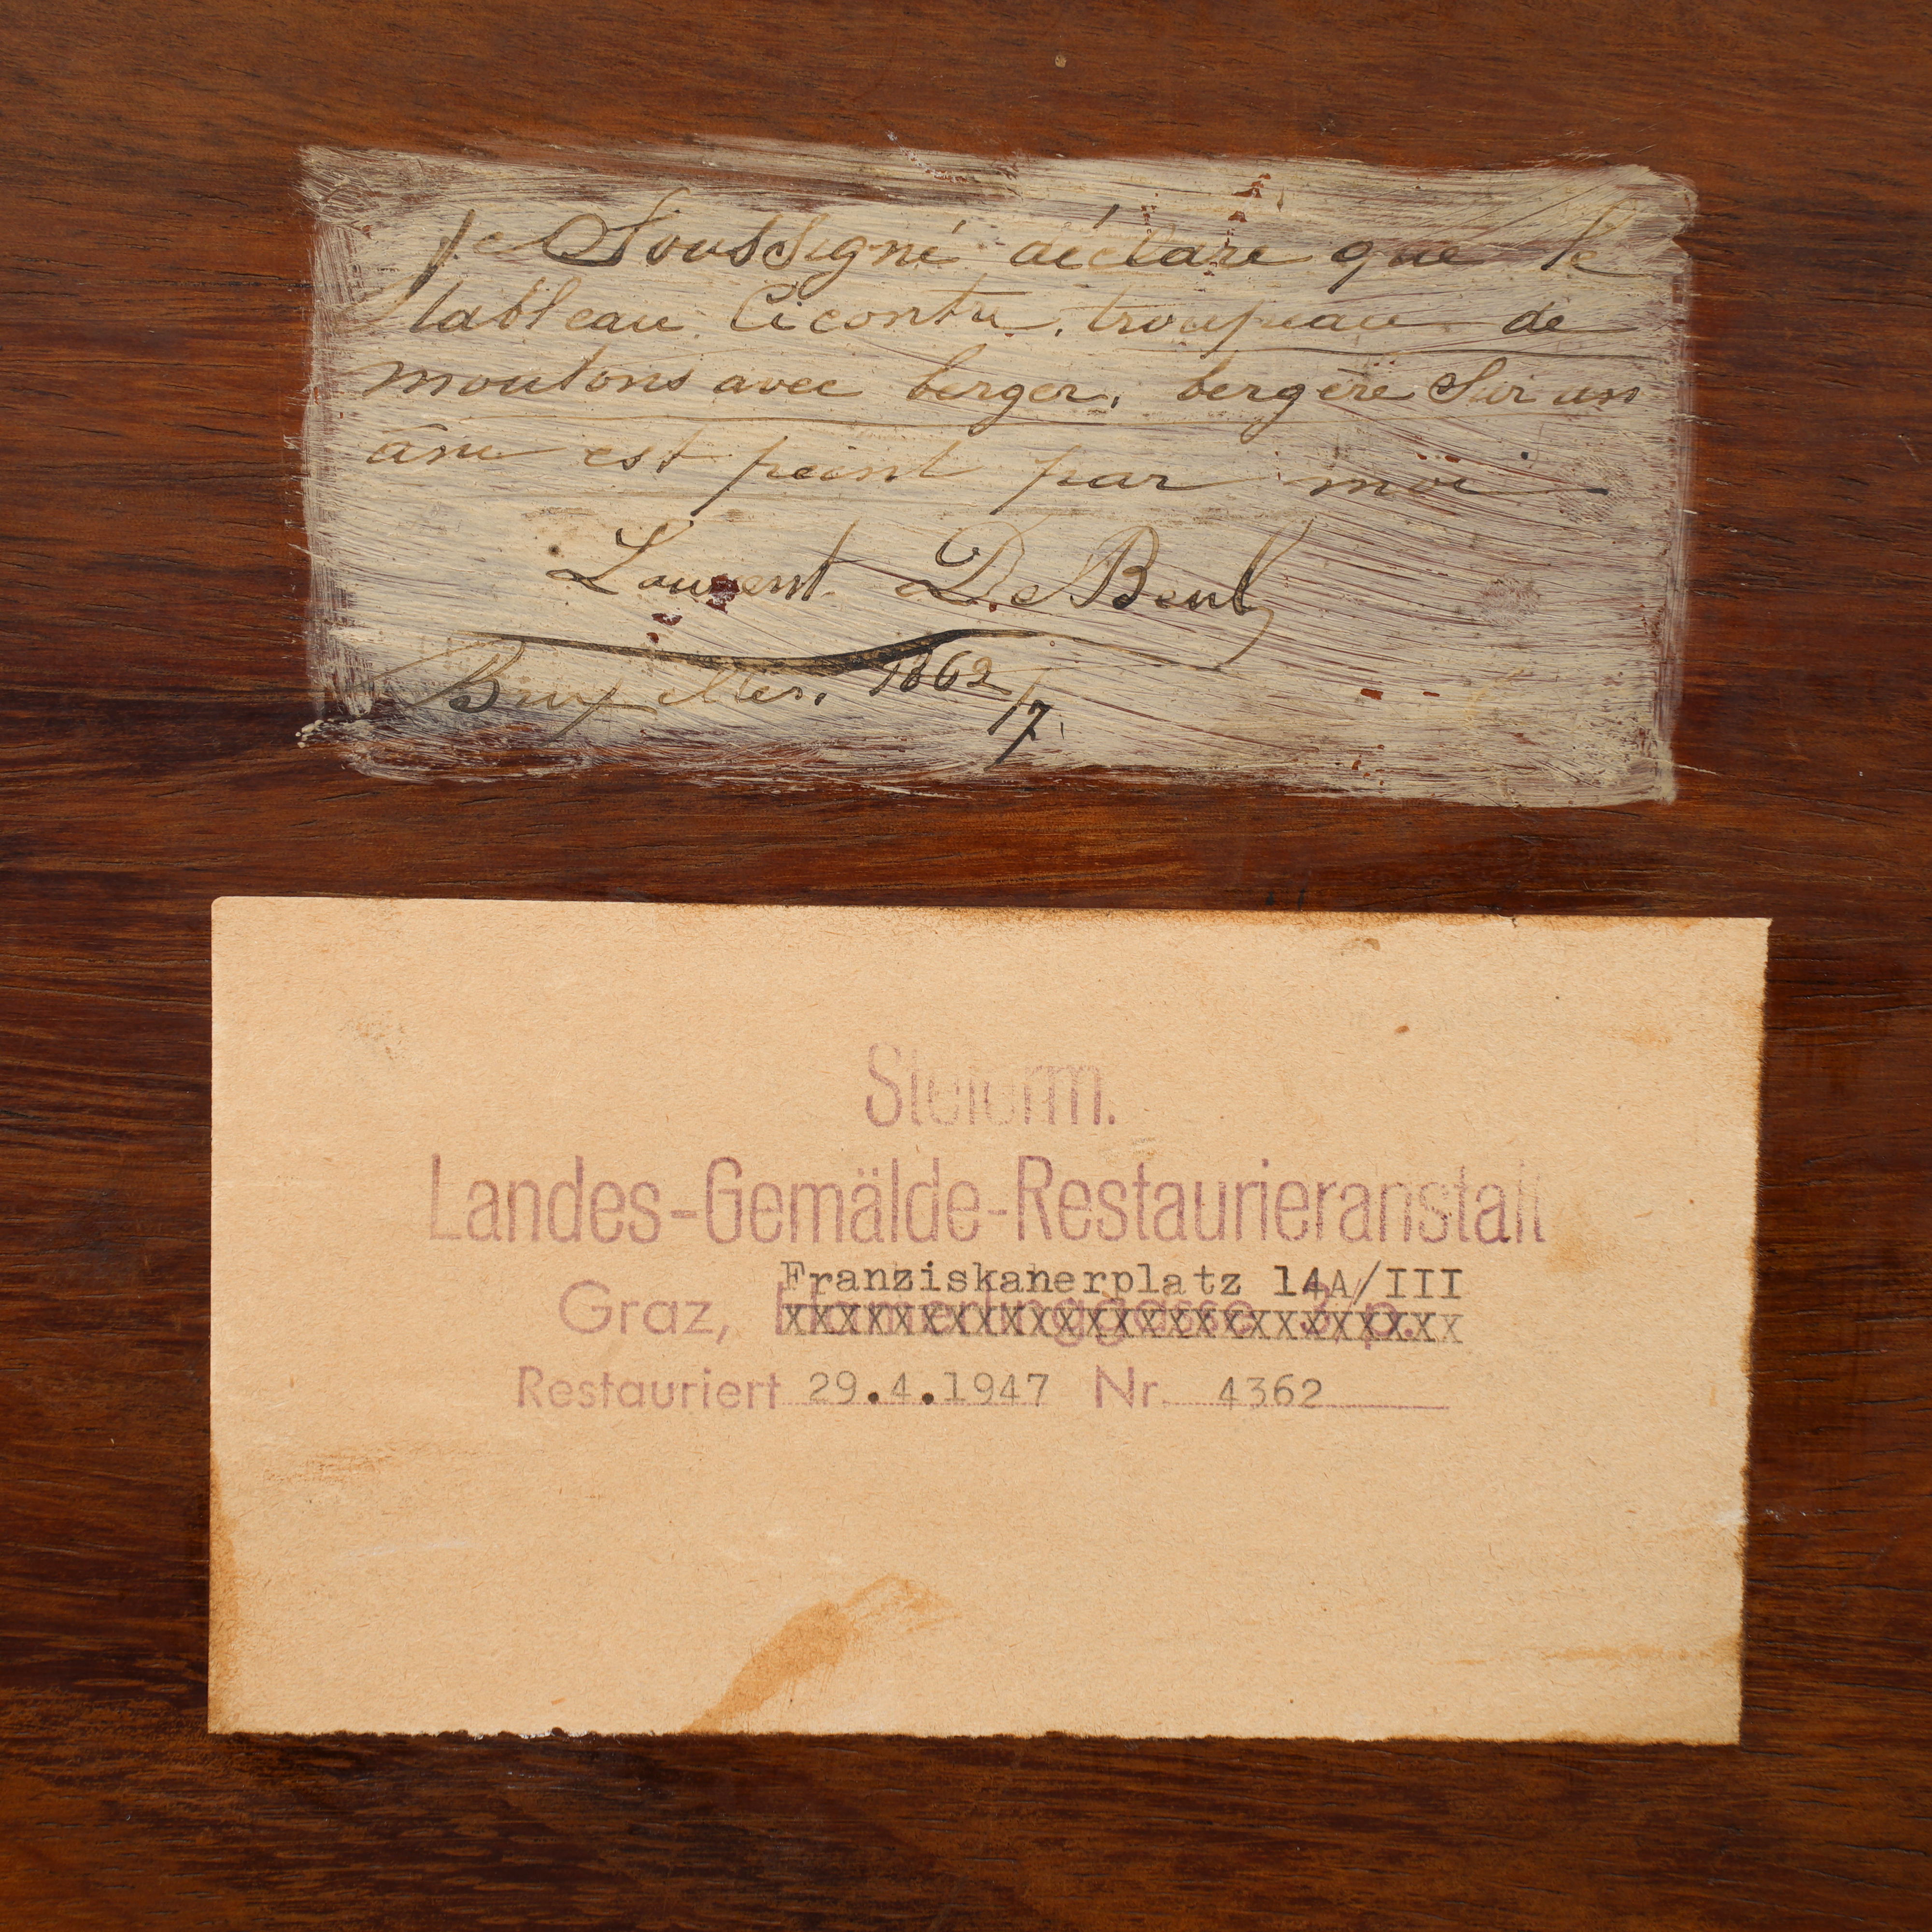 Je Soussigné déclare que le
tableau Cicontre, troupeau de
moutons avec berger, bergère Sur un
âne est peint par moi
Laurent De Beul
Bruxelles. 1862/7
Steierm.
Landes-Gemälde-Restaurieranstalt
Franziskanerplatz 14A/III
Graz, Hamerlinggasse 3, p.
Restauriert 29.4.1947 Nr. 4362